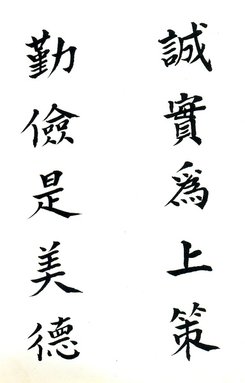 誠實爲上策
勤儉是美德